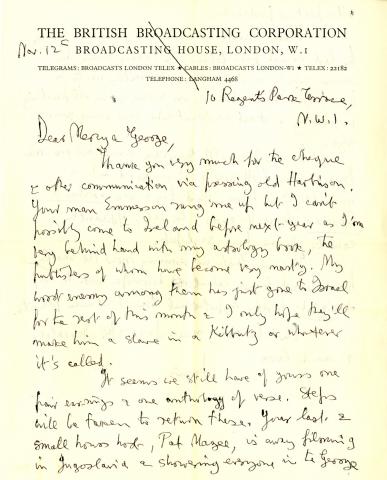 THE BRITISH BROADCASTING CORPORATION
Nov. 12th
BROADCASTING HOUSE, LONDON, W.1
TELEGRAMS: BROADCASTS LONDON TELEX ★ CABLES: BROADCASTS LONDON-W1 ★ TELEX: 22182
TELEPHONE: LANGHAM 4468
10 Regents Park Terrace,
N.W.1.
Dear Mercy & George,
Thank you very much for the cheque
& other communication via passing old Harbison.
Your man Emmerson rang me up but I can't
possibly come to Ireland before next year as I'm
very behind hand with my astrology book, the
publishers of whom have become very nasty. My
worst enemy among them has just gone to Israel
for the rest of this month & I only hope they'll
make him a slave in a Kibbutz or whatever
it's called.
It seems we still have of yours one
pair earrings & one anthology of verse. Steps
will be taken to return these. Your last &
small hours host, Pat Magee, is away filming
in Jugoslavia & showering everyone in the George